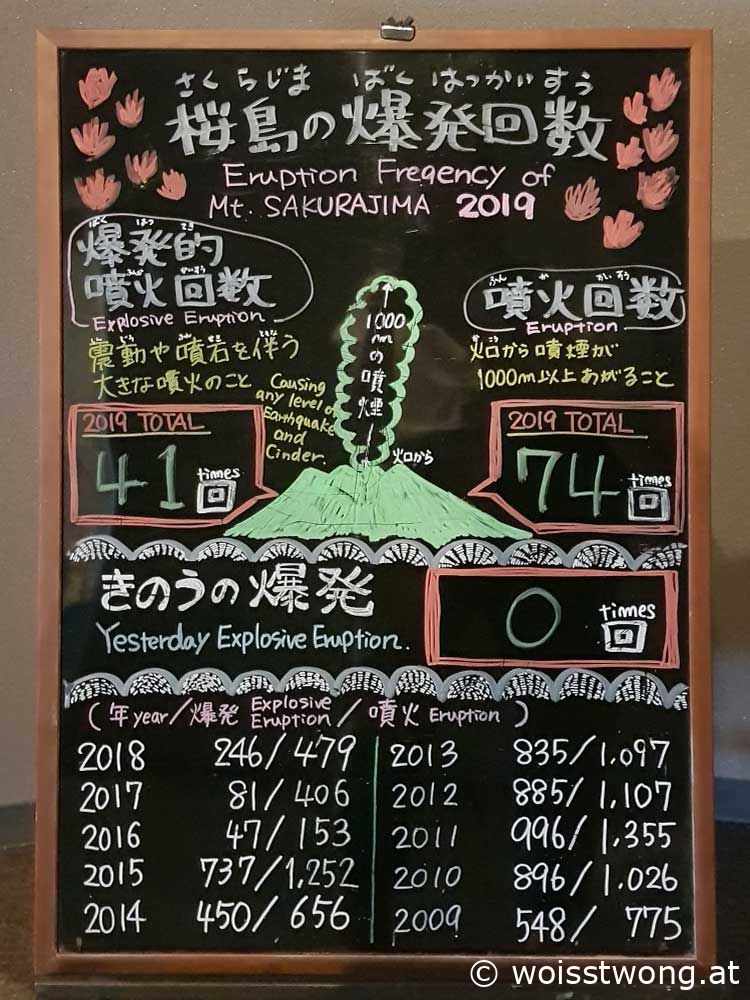 さくらじま ばくはつかいすう
桜島の爆発回数
Eruption Freqency of
Mt. SAKURAJIMA 2019
ばくはつてき
爆発的
ふんかかいすう
噴火回数
Explosive Eruption
しんどう ふんせき ともな
震動や噴石を伴う
おお ふんか
大きな噴火のこと
Causing
any level of
Earthquake
and
Cinder.
2019 TOTAL
41 times
回
1000mの噴煙
火口から
ふんかかいすう
噴火回数
Eruption
火口から噴煙が
1000m以上あがること
2019 TOTAL
74 times
回
きのうの爆発
Yesterday Explosive Eruption.
0 times
回
(年year/爆発 Explosive Eruption/噴火 Eruption)
2018 246/479
2017 81/406
2016 47/153
2015 737/1,252
2014 450/656
2013 835/1,097
2012 885/1,107
2011 996/1,355
2010 896/1,026
2009 548/775
© woisstwong.at